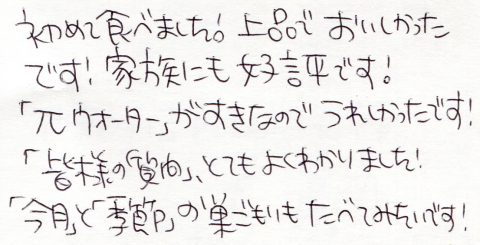 初めて食べました! 上品で おいしかった
です! 家族にも 好評です!
「πウォーター」がすきなので うれしかったです!
「皆様の質向」、とてもよくわかりました!
「今月」と「季節」の巣ごもいも たべてみたいです!